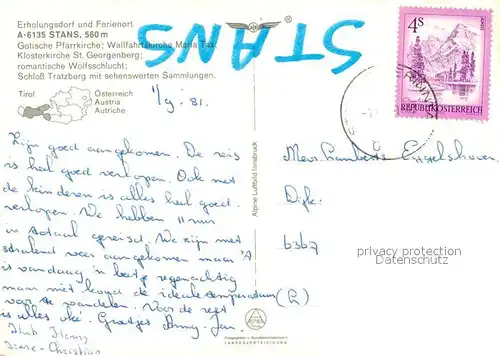 Erholungsdorf und Ferienort
A-6135 STANS, 560 m
Gotische Pfarrkirche; Wallfahrtskirche Maria Tax;
Klosterkirche St. Georgenberg;
romantische Wolfsschlucht;
Schloß Tratzberg mit sehenswerten Sammlungen.
Tirol
Österreich
Austria
Autriche
STANS
4S
REPUBLIK ÖSTERREICH
1/9-'81.
Zijn goed aangekomen. De reis
is heel goed verlopen. Ook met
de kinderen is alles heel goed
verlopen. We hebben 11 uur
in totaal gereisd. We zijn met
stralend weer aangekomen maar 'A
is vandaag 'n beetje regenachtig
maar met de ideale temperatuur
voor te wandelen. Voor de rest
is alles oké. Groetjes Anny-Jan.
Christian
Alpine Luftbild Innsbruck
Mevr. Lamberts Eggelshoven
6367
privacy protection
Datenschutz
LANDESVERTEIDIGUNG